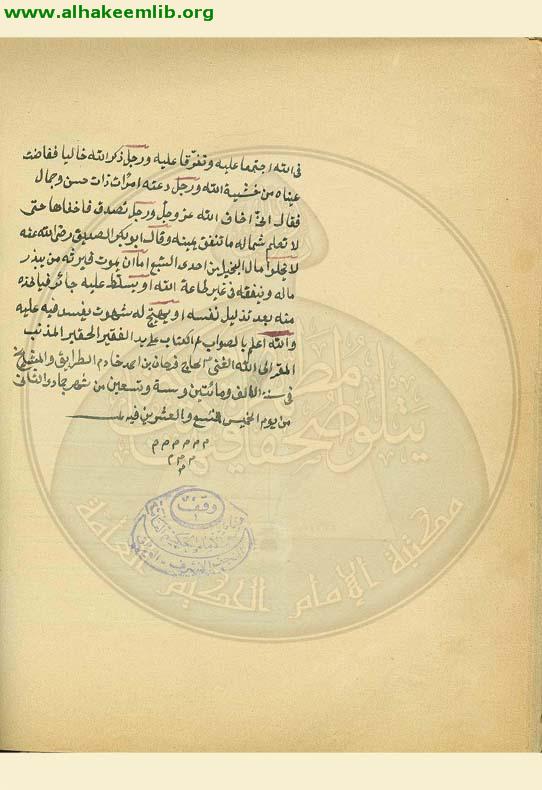 www.alhakeemlib.org
في الله اجتمعا عليه وتفرقا عليه ورجل ذكر الله خاليا ففاضت
عيناه من خشية الله ورجل دعته امرات ذات حسن وجمال
فقال اني اخاف الله عز وجل ورجل تصدق فاخفاها حتى
لا تعلم شماله ما تنفق يمينه وقال ابو بكر الصديق رضى الله عنه
لا يخلوا مال البخيل من احدى السبع اما ان يموت فيرثه من يبذر
ماله وينفقه في غير طاعة الله او يسلط عليه جائر فياخذه
منه بعد تذليل نفسه او يهيج له شهوت يفسد فيه عليه
والله اعلم بالصواب تم الكتاب على يد الفقير الحقير المذنب
المقر الى الله الغني الحاج فرحان بن احمد خادم الطرايق والمشايخ
في سنة الالف ومائتين وستة وتسعين من شهر جماد والثاني
من يوم الخميس التسع والعشرين فيه
م م م م م م
م م م
م
وقف
مكتبة الإمام الحكيم العامة
يتلو صحفا